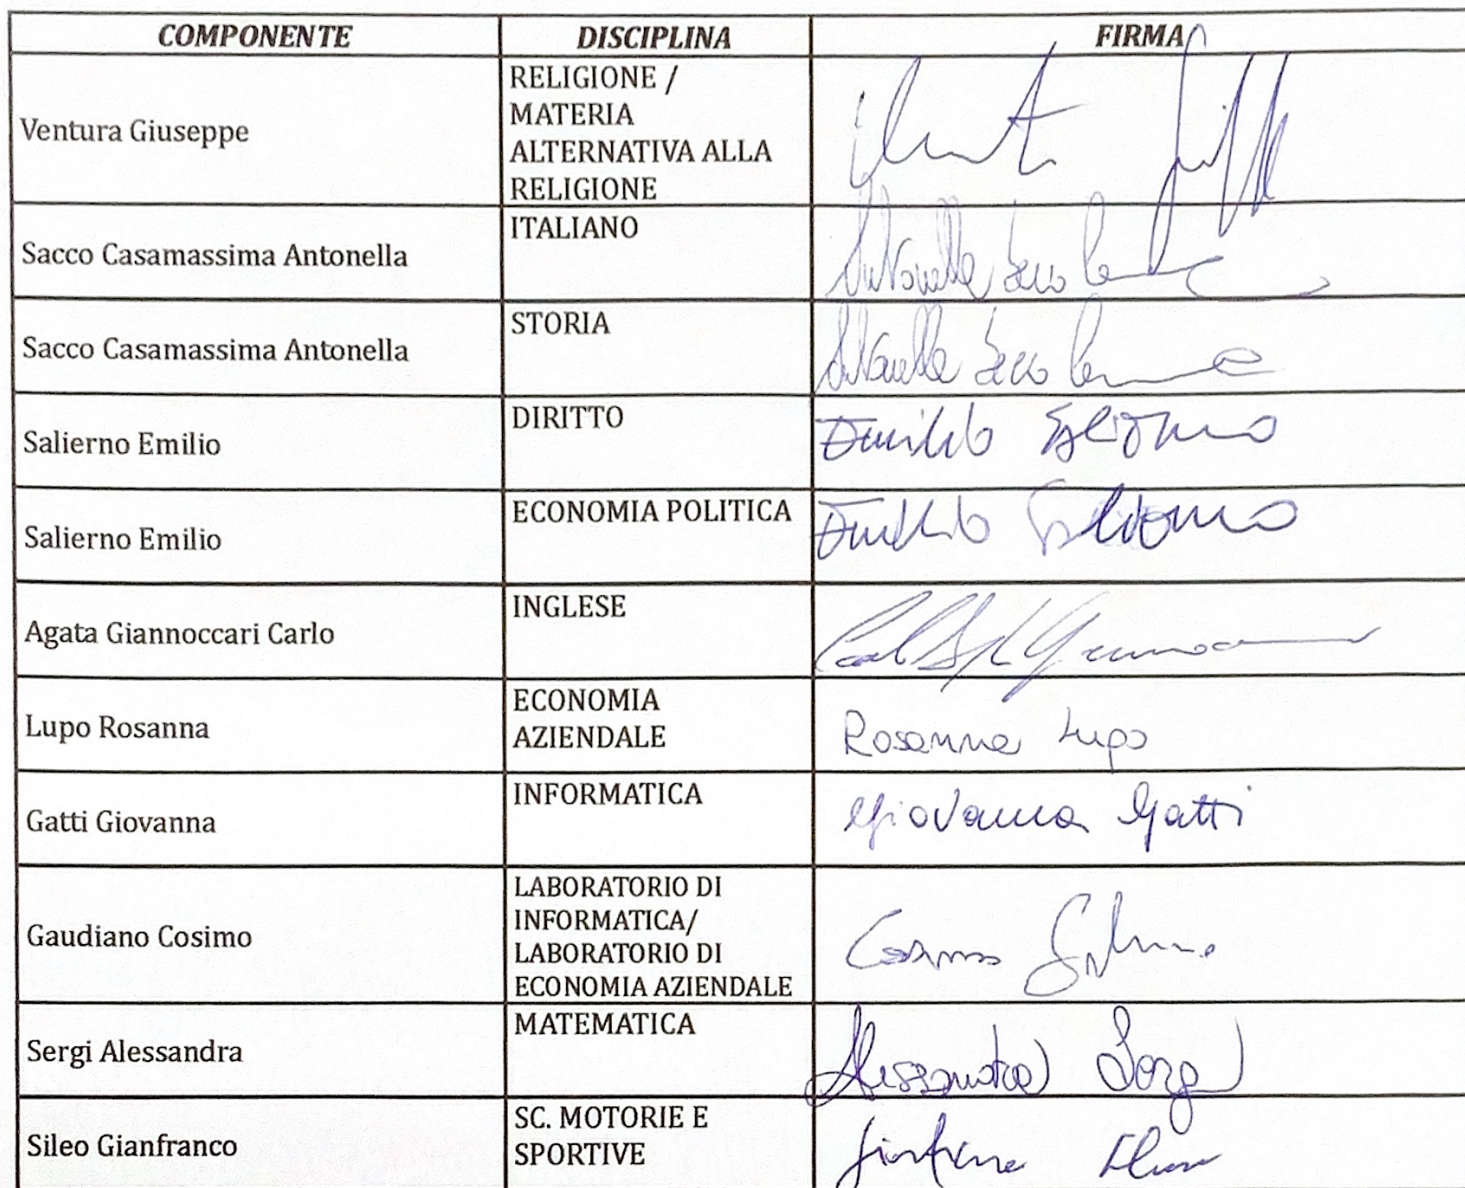 COMPONENTE DISCIPLINA FIRMA
Ventura Giuseppe
RELIGIONE /
MATERIA
ALTERNATIVA ALLA
RELIGIONE
Sacco Casamassima Antonella
ITALIANO
Antonella Sacco
Sacco Casamassima Antonella
STORIA
Antonella Sacco
Salierno Emilio
DIRITTO
Emilio Salierno
Salierno Emilio
ECONOMIA POLITICA
Emilio Salierno
Agata Giannoccari Carlo
INGLESE
Lupo Rosanna
ECONOMIA
AZIENDALE
Rosanna Lupo
Gatti Giovanna
INFORMATICA
Giovanna Gatti
Gaudiano Cosimo
LABORATORIO DI
INFORMATICA/
LABORATORIO DI
ECONOMIA AZIENDALE
Cosimo
Sergi Alessandra
MATEMATICA
Alessandra Sergi
Sileo Gianfranco
SC. MOTORIE E
SPORTIVE
Gianfranco